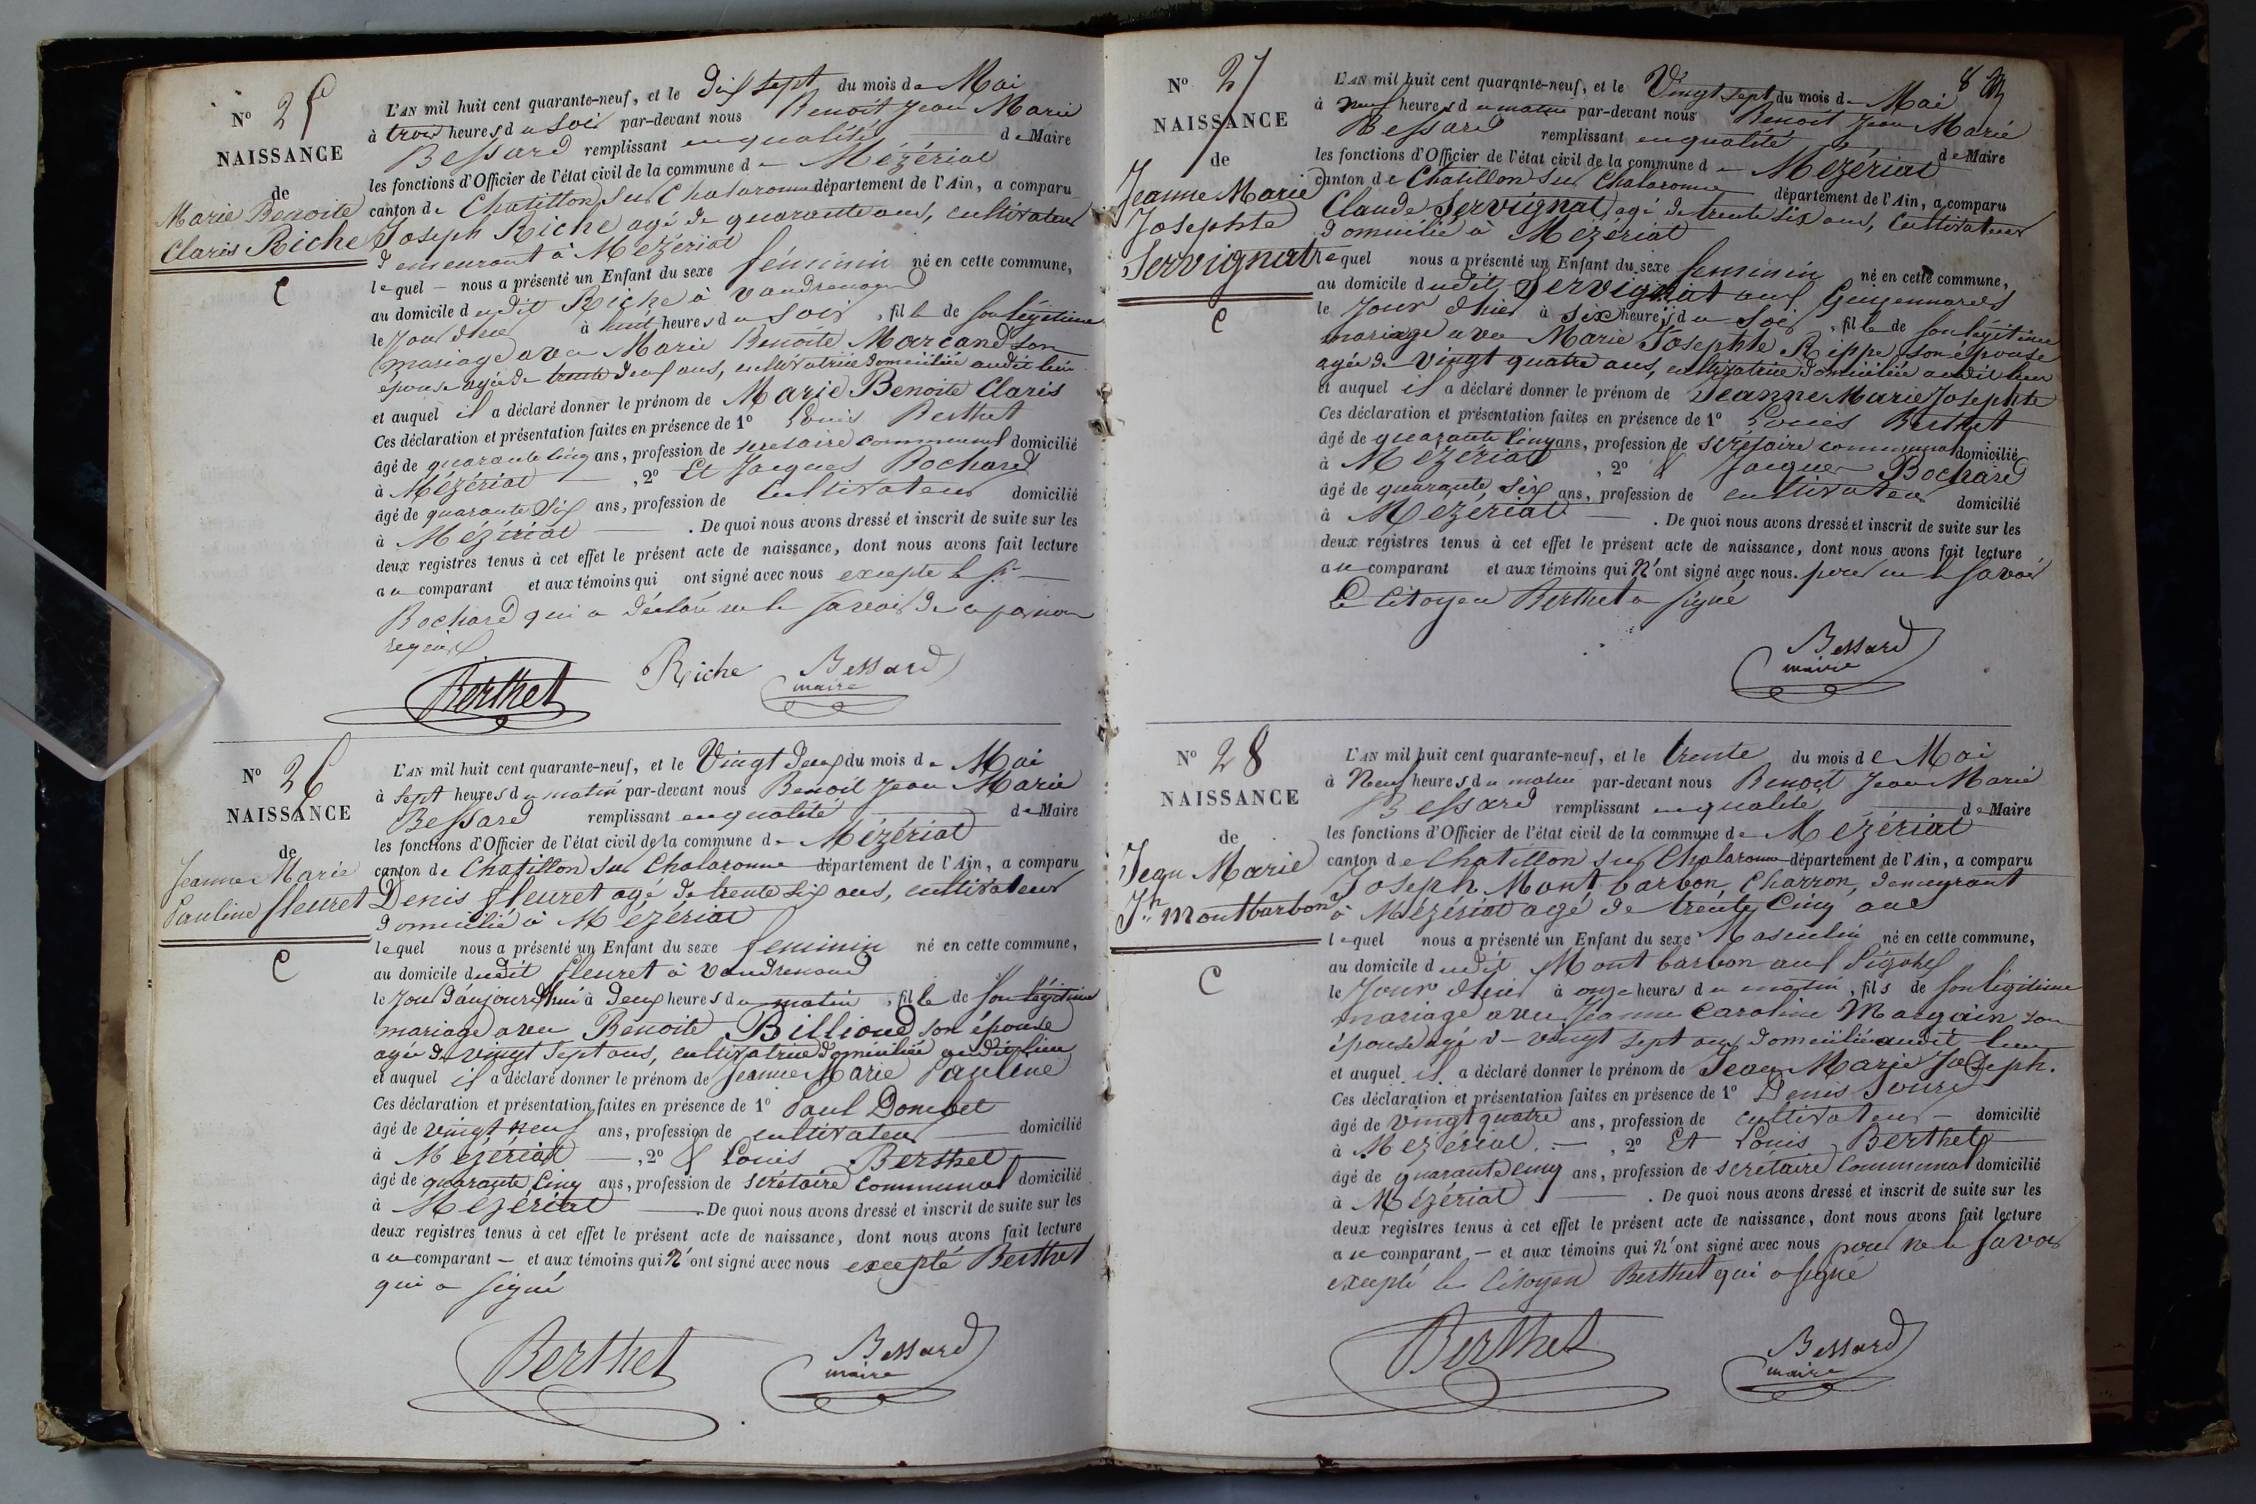 N° 25
NAISSANCE
de
Marie Benoite
Claris Riche
C
L'AN mil huit cent quarante-neuf, et le dix sept du mois de Mai
à trois heures du soir par-devant nous Benoit Jean Marie
Bessard remplissant en qualité de Maire
les fonctions d'Officier de l'état civil de la commune de Mézériat
canton de Chatillon sur Chalaronne département de l'Ain, a comparu
Joseph Riche agé de quarante ans, cultivateur
demeurant à Mézériat
lequel nous a présenté un Enfant du sexe féminin né en cette commune,
au domicile dudit Riche à Vandrenoud
le jour d'hier à huit heures du soir, fille de son légitime
mariage avec Marie Benoite Marcand son
épouse agée de trente deux ans, cultivatrice domiciliée audit lieu
et auquel il a déclaré donner le prénom de Marie Benoite Claris
Ces déclaration et présentation faites en présence de 1° Louis Berthet
âgé de quarante cinq ans, profession de secretaire communal domicilié
à Mézériat, 2° Et Jacques Bochard
âgé de quarante six ans, profession de cultivateur domicilié
à Mézériat. De quoi nous avons dressé et inscrit de suite sur les
deux registres tenus à cet effet le présent acte de naissance, dont nous avons fait lecture
au comparant et aux témoins qui ont signé avec nous excepte le Sr
Bochard qui a déclaré ne le savoir de ce par nous
requis
Berthet Riche Bessard
maire
N° 26
NAISSANCE
de
Jeanne Marie
Pauline fleuret
C
L'AN mil huit cent quarante-neuf, et le Vingt deux du mois de Mai
à sept heures du matin par-devant nous Benoit Jean Marie
Bessard remplissant en qualité de Maire
les fonctions d'Officier de l'état civil de la commune de Mézériat
canton de Chatillon sur Chalaronne département de l'Ain, a comparu
Denis fleuret agé de trente six ans, cultivateur
domicilié à Mezériat
lequel nous a présenté un Enfant du sexe feminin né en cette commune,
au domicile dudit fleuret à Vandrenoud
le Jour d'aujourd'hui à deux heures du matin, fille de son légitime
mariage avec Benoite Billioud son épouse
agée de vingt sept ans, cultivatrice domiciliée audit lieu
et auquel il a déclaré donner le prénom de Jeanne Marie Pauline
Ces déclaration et présentation faites en présence de 1° Paul Dombet
âgé de vingt neuf ans, profession de cultivateur domicilié
à Mézériat, 2° & Louis Berthet
âgé de quarante cinq ans, profession de secrétaire communal domicilié
à Mézériat. De quoi nous avons dressé et inscrit de suite sur les
deux registres tenus à cet effet le présent acte de naissance, dont nous avons fait lecture
au comparant et aux témoins qui n'ont signé avec nous excepté Berthet
qui a signé
Berthet Bessard
maire
8
N° 27
NAISSANCE
de
Jeanne Marie
Josephte
Servignat
C
L'AN mil huit cent quarante-neuf, et le Vingt sept du mois de Mai
à neuf heures du matin par-devant nous Benoit Jean Marie
Bessard remplissant en qualité de Maire
les fonctions d'Officier de l'état civil de la commune de Mézériat
canton de Chatillon sur Chalaronne département de l'Ain, a comparu
Claude Servignat, agé de trente six ans, Cultivateur
domicilié à Mézériat
lequel nous a présenté un Enfant du sexe feminin né en cette commune,
au domicile dudit Servignat aux Guyennards
le Jour d'hier à six heures du soir, fille de son légitime
mariage avec Marie Josephte Rippe son épouse
agée de vingt quatre ans, cultivatrice domiciliée audit lieu
et auquel il a déclaré donner le prénom de Jeanne Marie Josephte
Ces déclaration et présentation faites en présence de 1° Louis Berthet
âgé de quarante cinq ans, profession de secrétaire communal domicilié
à Mézériat, 2° & Jacques Bochard
âgé de quarante six ans, profession de cultivateur domicilié
à Mézériat. De quoi nous avons dressé et inscrit de suite sur les
deux registres tenus à cet effet le présent acte de naissance, dont nous avons fait lecture
au comparant et aux témoins qui n'ont signé avec nous. pour ne le savoir
Le Citoyen Berthet a signé
Bessard
maire
N° 28
NAISSANCE
de
Jean Marie
Jh Montbarbon
C
L'AN mil huit cent quarante-neuf, et le trente du mois de Mai
à Neuf heures du matin par-devant nous Benoit Jean Marie
Bessard remplissant en qualité de Maire
les fonctions d'Officier de l'état civil de la commune de Mézériat
canton de Chatillon sur Chalaronne département de l'Ain, a comparu
Joseph Montbarbon, Charron, demeurant
à Mézériat agé de trente cinq ans
lequel nous a présenté un Enfant du sexe Masculin né en cette commune,
au domicile dudit Montbarbon aux
le Jour d'hier à onze heures du matin, fils de son légitime
mariage avec Jeanne Caroline Mangain son
épouse agé de vingt sept ans domiciliée audit lieu
et auquel il a déclaré donner le prénom de Jean Marie Joseph.
Ces déclaration et présentation faites en présence de 1° Denis
âgé de vingt quatre ans, profession de cultivateur domicilié
à Mézériat, 2° Et Louis Berthet
âgé de quarante cinq ans, profession de secrétaire communal domicilié
à Mézériat. De quoi nous avons dressé et inscrit de suite sur les
deux registres tenus à cet effet le présent acte de naissance, dont nous avons fait lecture
au comparant et aux témoins qui n'ont signé avec nous pour ne le savoir
excepté le Citoyen Berthet qui a signé
Berthet Bessard
maire